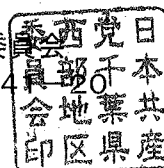 日本共産
党千葉県
西部地区
委員会印
員会
41－20